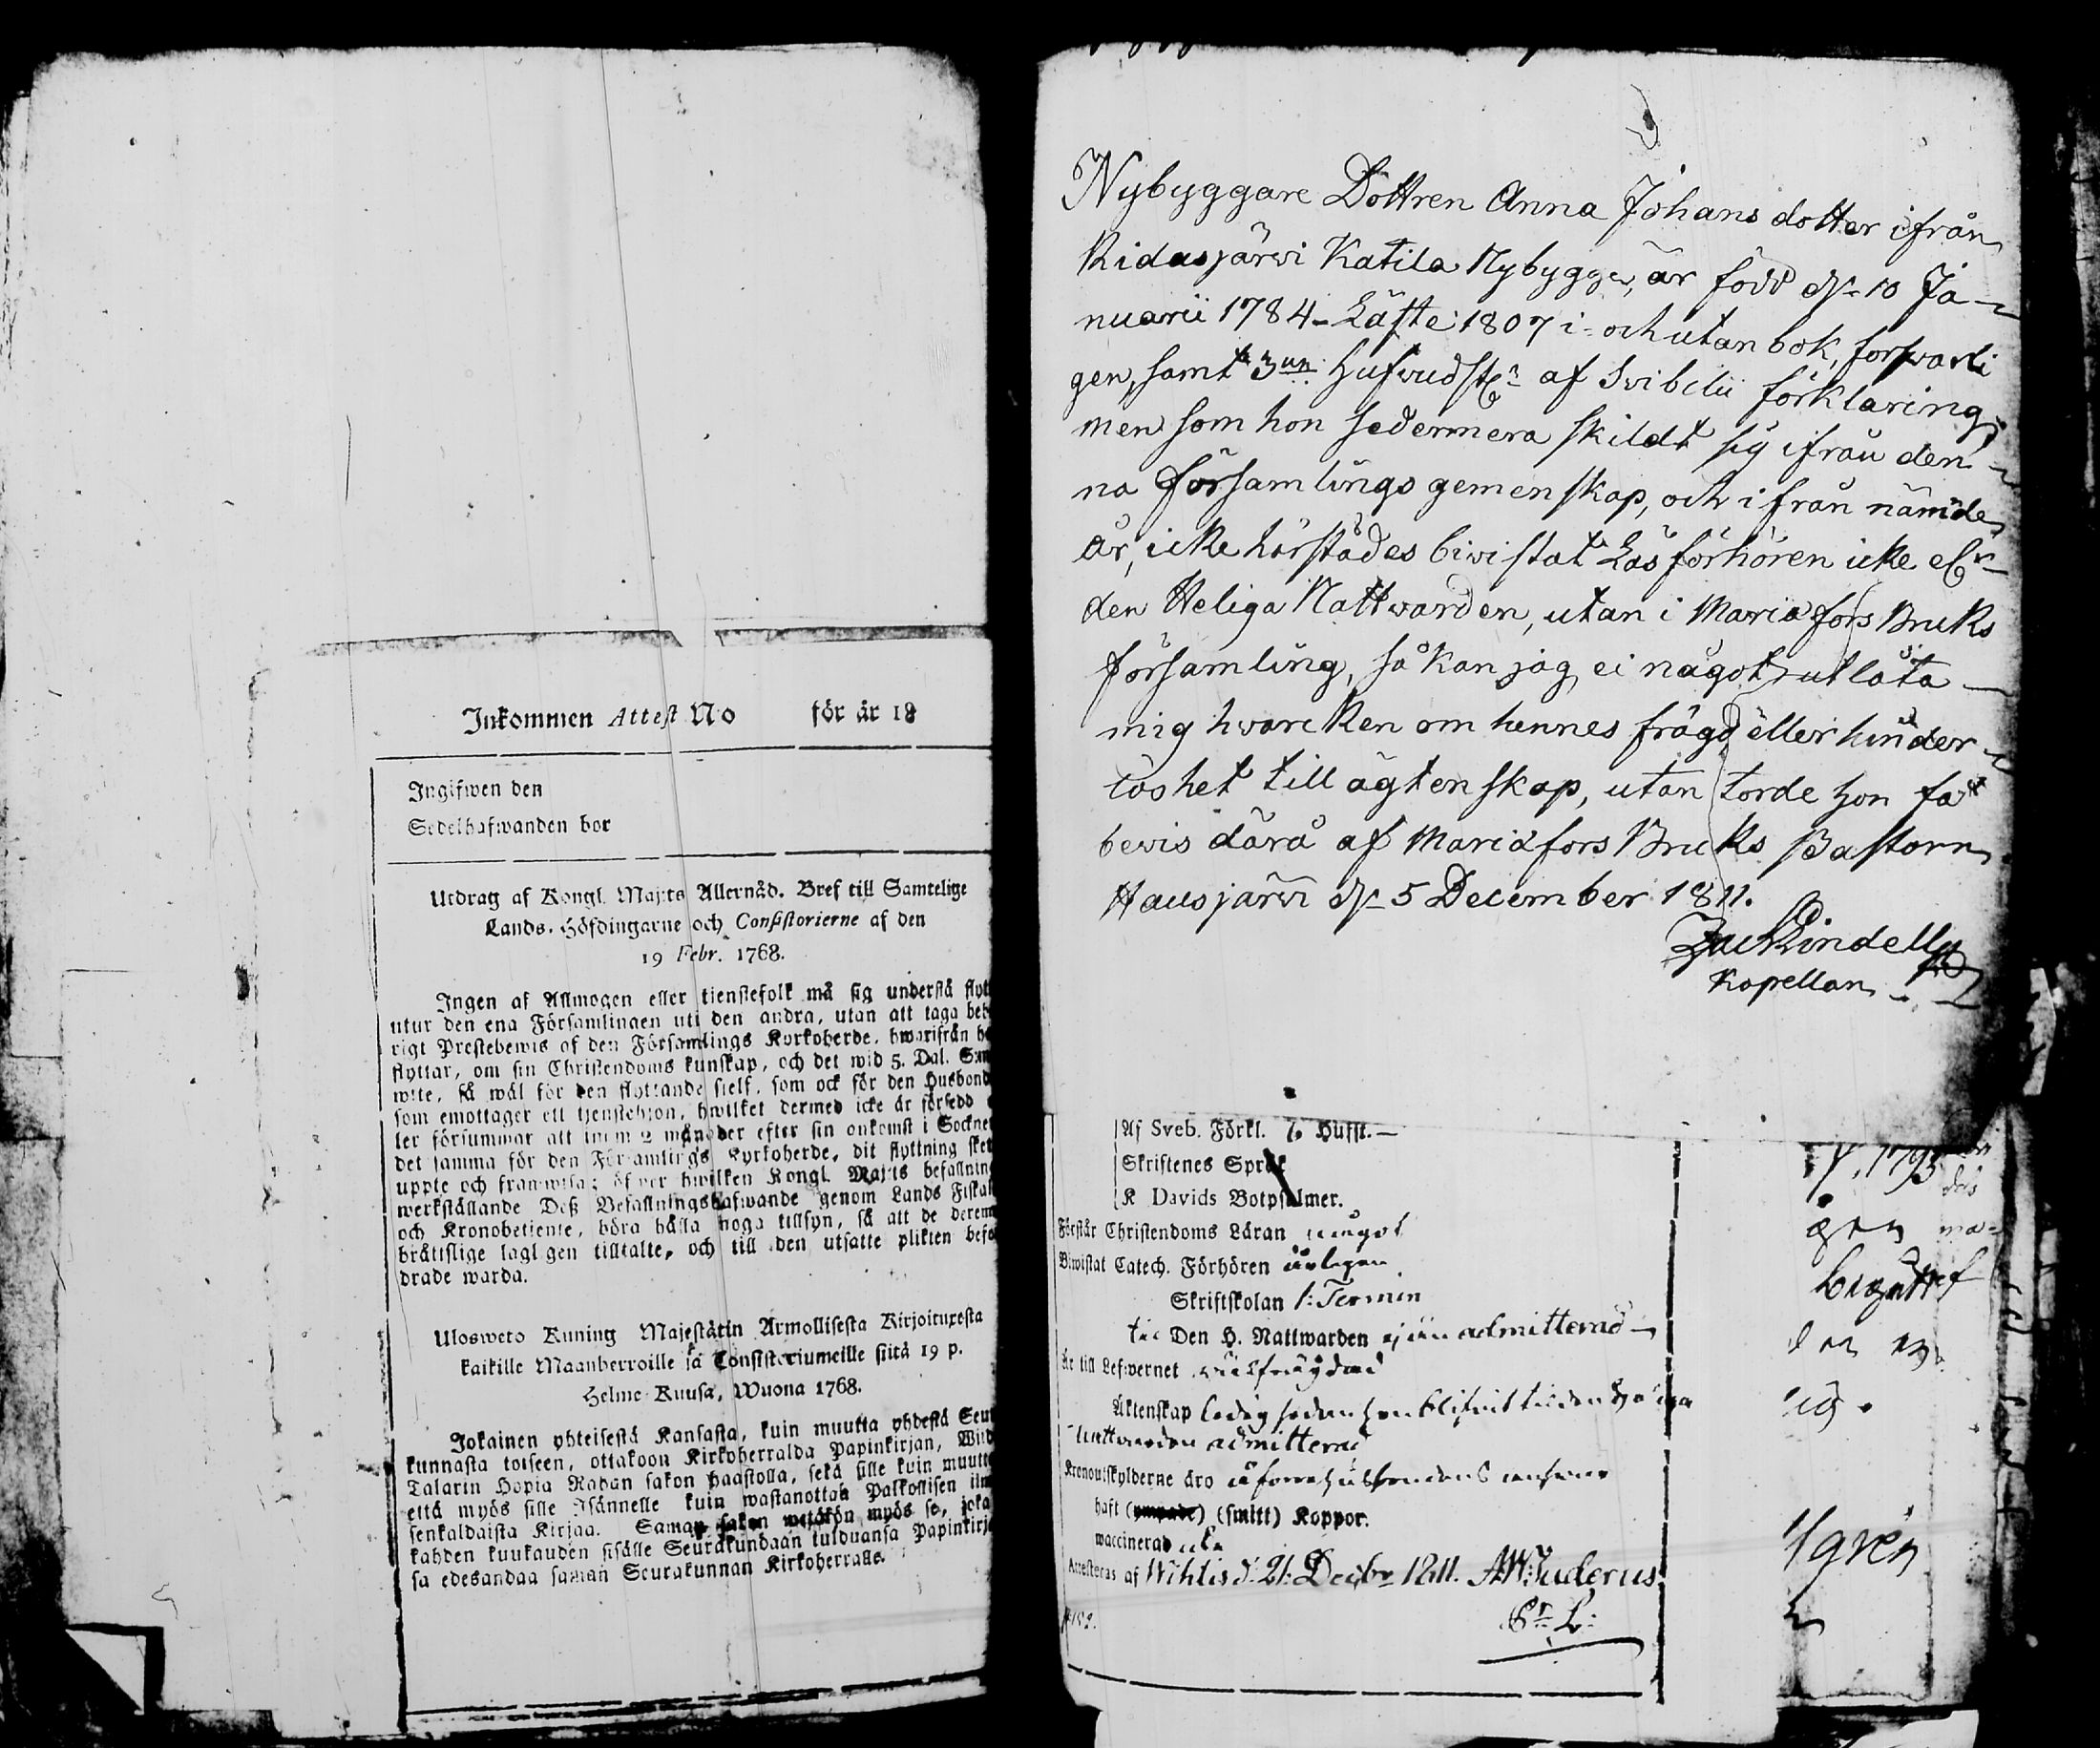 Inkommen Attest No för år 18
Ingifwen den
Sedelhafwanden bor
Utdrag af Kongl. Maj:ts Allernåd. Bref till Samtelige
Lands-Höfdingarne och Consistorierne af den
19 Febr. 1768.
Ingen af Allmogen eller tienstefolk må sig understå flytt
utur den ena Församlingen uti den andra, utan att taga beh
rigt Prestebewis af den Församlings Kyrkoherde, hwarifrån h
flyttar, om sin Christendoms kunskap, och det wid 5. Dal. S:m
wite, så wäl för den flyttande sielf, som ock för den Husbond
som emottager ett tjenstehjon, hwilket dermed icke är försedd
ler försummar att inom 2 månader efter sin ankomst i Sockne
det samma för den Församlings Kyrkoherde, dit flyttning sket
uppte och framwisa; öfwer hwilken Kongl. Maj:ts befallning
werkställande Deß Befallningshafwande genom Lands Fiskal
och Kronobetiente, böra hålla noga tillsyn, så att de derem
bråttslige lagligen tilltalte, och till den utsatte plikten befo
drade warda.
Ulosweto Kuning Majestätin Armollisesta Kirjoituxesta
kaikille Maanherroille ja Consistoriumeille siitä 19 p.
Helme-Kuusa, Wuona 1768.
Jokainen yhteisestä Kansasta, kuin muutta yhdestä Seu
kunnasta toiseen, ottakoon Kirkoherralda Papinkirjan, Wiid
Talarin Hopia Rahan sakon haastolla, sekä sille kuin muutt
että myös sille Isännelle kuin wastanottaa Palkollisen ilm
senkaldaista Kirjaa. Saman sakon wetäkön myös se, joka
kahden kuukauden sisälle Seurakundaan tulduansa Papinkirja
sa edesandaa saman Seurakunnan Kirkoherralle.
Nybyggare Dottren Anna Johans dotter ifrån
Kidasjärwi Katila Nybygge, är född d. 10 Ja-
nuarii 1784 - Läste 1807 i- och utan bok, forswarli
gen, samt 3ne Hufwudst:r af Svibelii förklaring,
men som hon sedermera skildt sig ifrån den-
na församlings gemenskap, och ifrån nämde
år, icke härstädes biwistat Läsförhören icke el:r
den Heliga Nattwarden, utan i Mariæfors Bruks
församling, så kan jag ei något utlåta
mig hwarcken om hennes frägd eller hinder-
löshet till ägtenskap, utan torde hon få
bewis därå af Mariæfors Bruks Pastorn.
Hausjärwi d. 5 December 1811.
Zach Lindell
Kapellan
Af Sveb. Förkl. 7. Hufst.
Skriftenes Språk
K Davids Botpsalmer.
Förstår Christendoms Läran något
Biwistat Catech. Förhören årligen
Skriftskolan 1: Termin
till Den H. Nattwarden ej än admitterad
Är till Lefwernet wälfrägdad
Äktenskap ledig sedan hon blifwit till den Heliga
Nattwarden admitterad
Kronoutskylderne äro
haft (smitt) Koppor.
waccinerad
Attesteras af Wihtis d: 21: Decbr 1811. A W: Juderus
1795